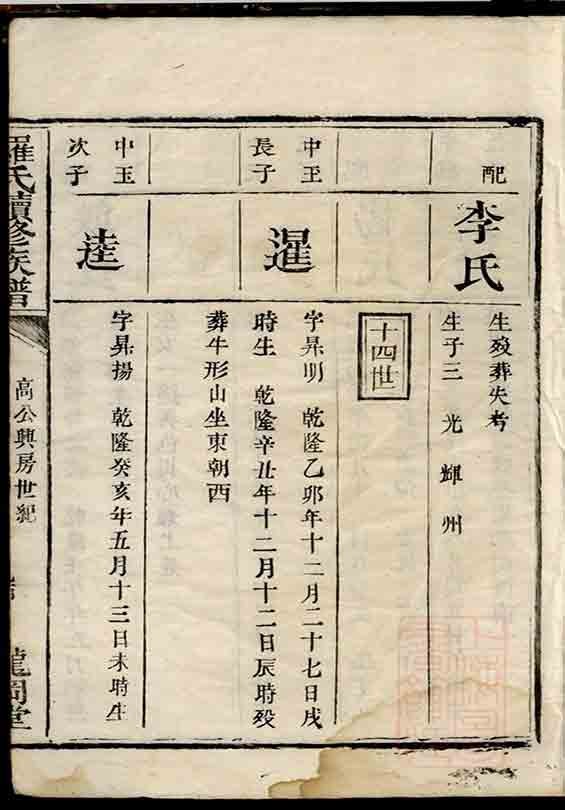 配
李氏
生歿葬失考
生子三 光 輝 州
十四世
中玉
長子
暹
字昇明 乾隆乙卯年十二月二十七日戌
時生 乾隆辛丑年十二月十二日辰時歿
葬牛形山坐東朝西
中玉
次子
逵
字昇揚 乾隆癸亥年五月十三日未時生
羅氏續修族譜
高公興房世紀
龍岡堂